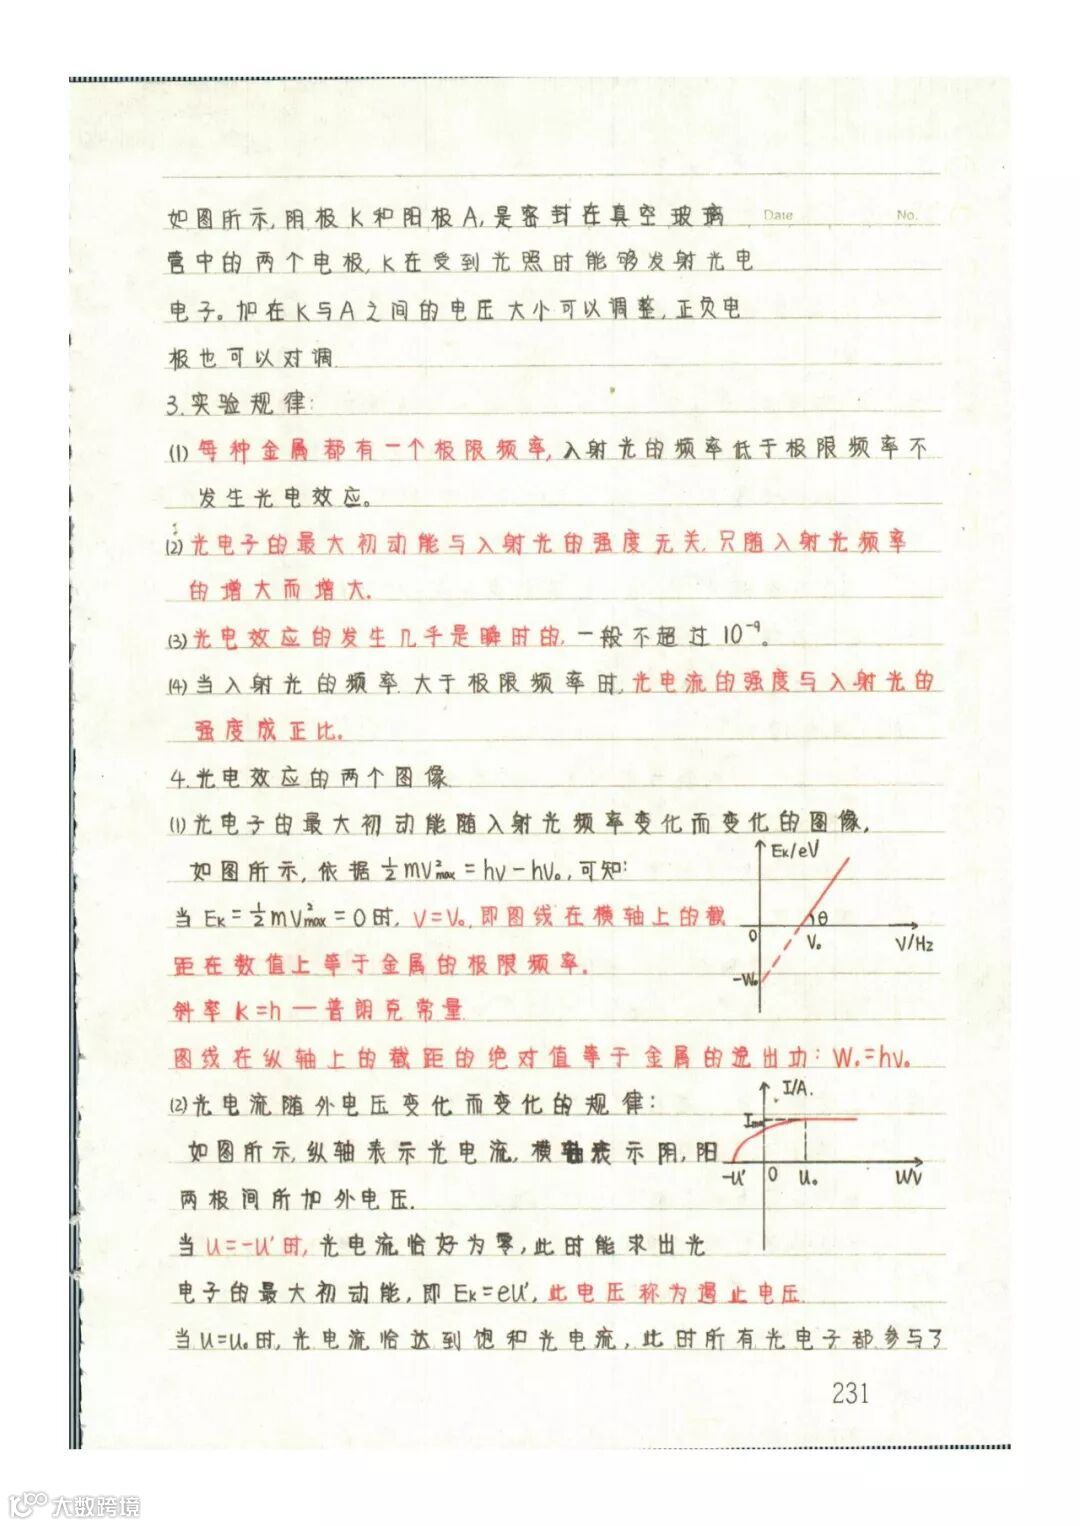 Date No.
如图所示,阴极K和阳极A,是密封在真空玻璃
管中的两个电极,K在受到光照时能够发射光电
电子。加在K与A之间的电压大小可以调整,正负电
极也可以对调.
3.实验规律:
(1)每种金属都有一个极限频率,入射光的频率低于极限频率不
发生光电效应。
(2)光电子的最大初动能与入射光的强度无关.只随入射光频率
的增大而增大.
(3)光电效应的发生几乎是瞬时的,一般不超过10⁻⁹。
(4)当入射光的频率大于极限频率时,光电流的强度与入射光的
强度成正比。
4.光电效应的两个图像
(1)光电子的最大初动能随入射光频率变化而变化的图像.
如图所示,依据½mV²max=hν-hν₀,可知:
当Eₖ=½mV²max=0时,ν=ν₀,即图线在横轴上的截
距在数值上等于金属的极限频率.
斜率k=h—普朗克常量.
图线在纵轴上的截距的绝对值等于金属的逸出功:W₀=hν₀
Eₖ/eV
0
θ
ν₀
ν/Hz
-W₀
(2)光电流随外电压变化而变化的规律:
如图所示,纵轴表示光电流,横轴表示阴,阳
两极间所加外电压.
当U=-U'时,光电流恰好为零,此时能求出光
电子的最大初动能,即Eₖ=eU',此电压称为遏止电压.
当U=U₀时,光电流恰达到饱和光电流,此时所有光电子都参与了
I/A.
Im
-U'
0
U₀
U/V
231
大数跨境